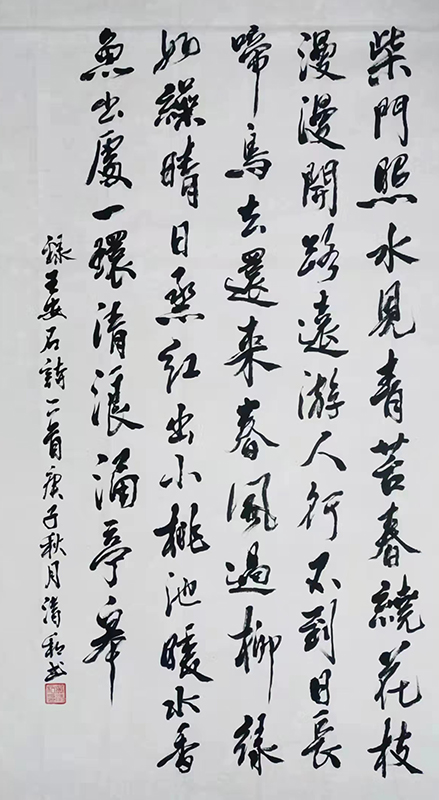 柴門照水見青苔春繞花枝
漫漫開路遠游人行不到日長
啼鳥去還来春風過柳綠
如繰晴日烝紅出小桃池暖水香
魚出處一環清浪涌亭皋
錄王安石詩二首庚子秋月